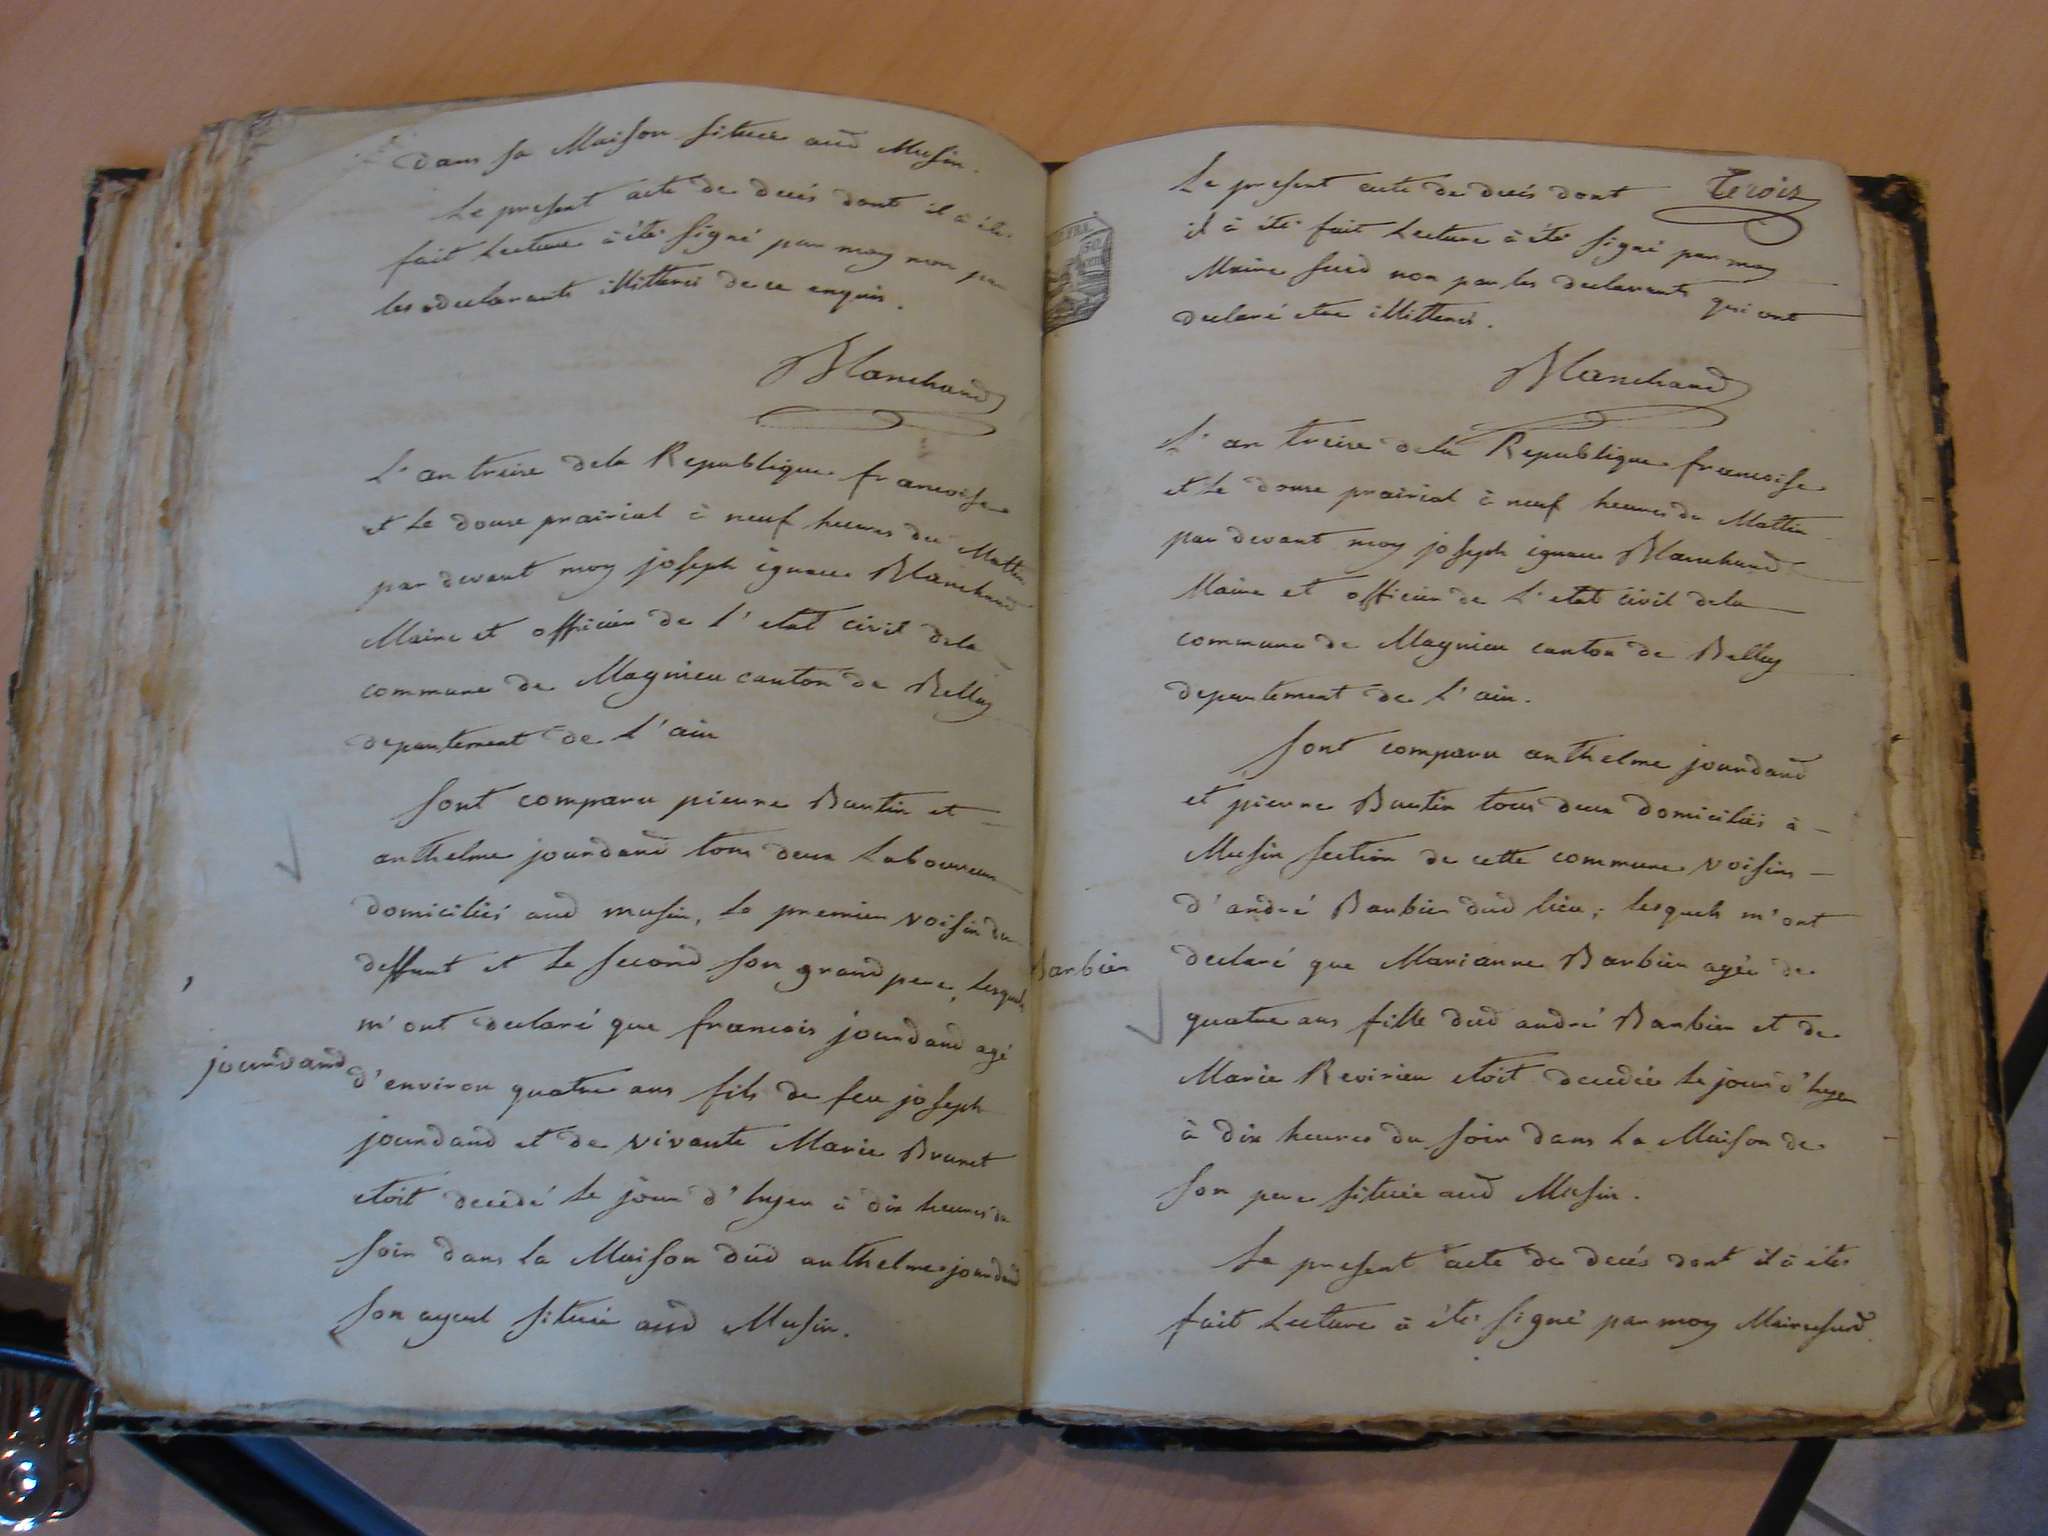 dans sa Maison située aud Musin.
Le present acte de decés dont il à été
fait Lecture à été signé par moy non par
les declarants illitterés de ce enquis.
Blanchand
L'an treise dela Republique francoise
et Le douse prairial à neuf heures du Mattin
par devant moy joseph ignace Blanchand
Maire et officier de L'etat civil dela
commune de Magnieu canton de Belley
departement de L'ain
Sont comparu pierre Bautin et
anthelme jourdand tous deux Laboureurs
domiciliés aud musin, Le premier voisin du
deffunt et Le second son grand pere, Lesquels
m'ont declaré que francois jourdand agé
jourdand
d'environ quatre ans fils de feu joseph
jourdand et de vivante Marie Brunet
etoit decedé Le jour d'hyer à dix heures du
soir dans La Maison dud anthelme jourdand
son ayeul située aud Musin.
Trois
Le present acte de decés dont
il à été fait Lecture à été signé par moy
Maire susd non par les declarants qui ont
declaré etre illitterés.
Blanchand
L'an treise dela Republique francoise
et Le douse prairial à neuf heures du Mattin
par devant moy joseph ignace Blanchand
Maire et officier de L'etat civil dela
commune de Magnieu canton de Belley
departement de L'ain.
Sont comparu anthelme jourdand
et pierre Bautin tous deux domiciliés à
Musin section de cette commune voisins
d'andré Barbier dud lieu, lesquels m'ont
Barbier
declaré que Marianne Barbier agée de
quatre ans fille dud andré Barbier et de
Marie Revirieu etoit decedée Le jour d'hyer
à dix heures du soir dans La Maison de
son pere située aud Musin.
Le present acte de decés dont il à étés
fait Lecture à été signé par moy Maire susd